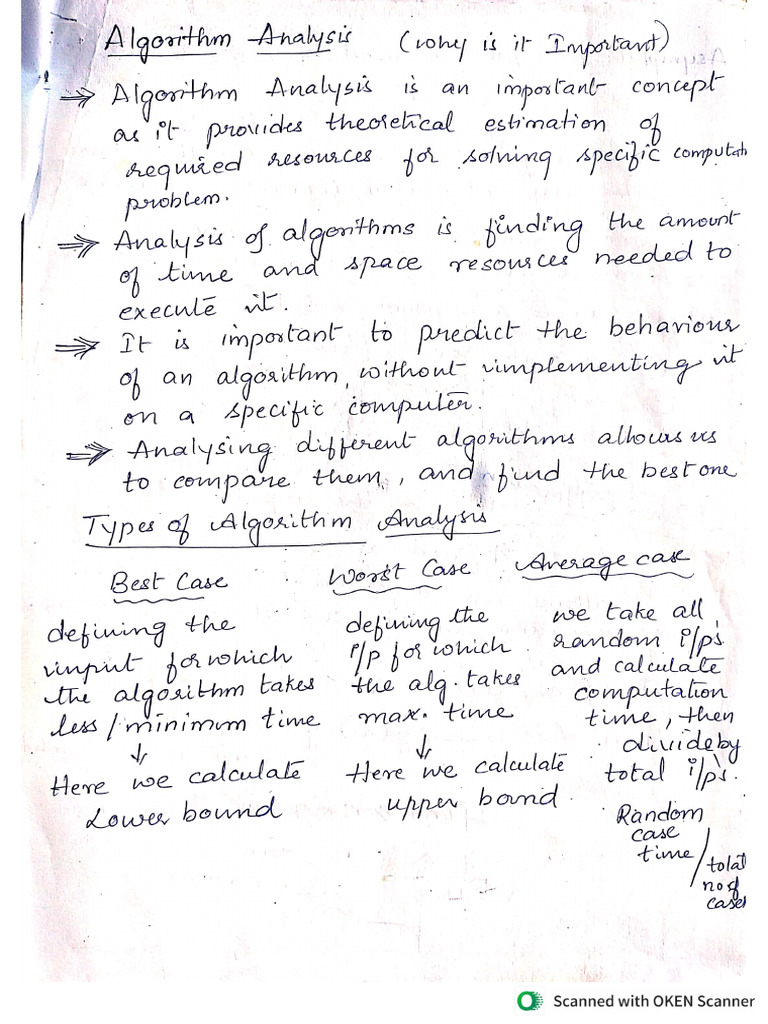 Algorithm Analysis (why is it Important)
⇒ Algorithm Analysis is an important concept
as it provides theoretical estimation of
required resources for solving specific computatn
problem.
⇒ Analysis of algorithms is finding the amount
of time and space resources needed to
execute it.
⇒ It is important to predict the behaviour
of an algorithm, without implementing it
on a specific computer.
⇒ Analysing different algorithms allows us
to compare them, and find the best one
Types of Algorithm Analysis
Best Case
defining the
input for which
the algorithm takes
less/minimum time
↓
Here we calculate
Lower bound
Worst Case
defining the
i/p for which
the alg. takes
max. time
↓
Here we calculate
upper bound.
Average case
we take all
random i/p's
and calculate
computation
time, then
divide by
total i/p's.
Random
case
time / total
no of
cases
Scanned with OKEN Scanner